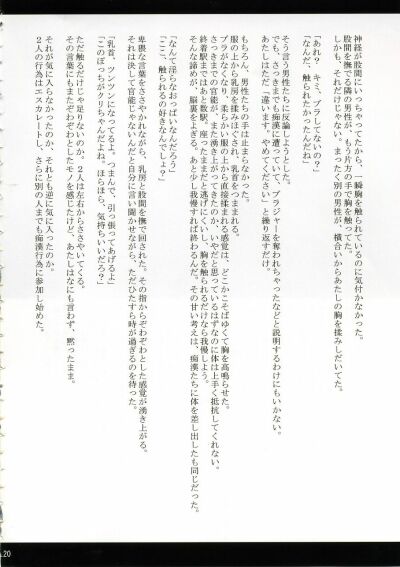 神経が股間にいっちゃってたから、一瞬胸を触られているのに気付かなかった。
股間を撫でる隣の男性が、もう片方の手で胸を触ってた。
しかも、それだけじゃない。まったく別の男性が、横合いからあたしの胸を揉みしだいてた。
「あれ？　キミ、ブラしてないの？」
「なんだ、触られたかったんだね」
そう言う男性たちに反論しようとした。
でも、さっきまでも痴漢に遭っていて、ブラジャーを奪われちゃったなどと説明するわけにもいかない。
あたしはただ「違います。やめてください」と繰り返すだけ。
もちろん、男性たちの手は止まらなかった。
服の上から乳房を揉みほぐされ、乳首をつままれる。
ブラがなくなり、柔らかい服の上から直接揉まれる感覚は、どこかこそばゆくて胸を高鳴らせた。
さっきまでの官能が、また湧き上がってきたのか、いやだと思っているはずなのに体は上手く抵抗してくれない。
終着駅まではあと数駅。座ったままだと逃げにくいし、胸を触られるだけなら我慢しよう。
そんな諦めが、脳裏をよぎる。あと少し我慢すれば終わるんだ。その甘い考えは、痴漢たちに体を差し出したも同じだった。
「なんて淫らなおっぱいなんだろう」
「ここ、触られるの好きなんでしょ？」
卑猥な言葉をささやかれながら、乳房と股間を撫で回された。その指からぞわぞわとした感覚が湧き上がる。
それは決して官能じゃないんだと自分に言い聞かせながら、ただひたすら時が過ぎるのを待った。
「乳首、ツンツンになってるよ。つまんで、引っ張ってあげるよ」
「このぽっちがクリちゃんだよね。ほらほら、気持ちいいだろ？」
ただ触るだけじゃ足りないのか、２人は左右からささやいてくる。
その言葉にもまたぞわぞわとしたモノを感じたけど、あたしはなにも言わず、黙ったまま。
それが気に入らなかったのか、それとも逆に気に入ったのか。
２人の行為はエスカレートし、さらに別の人までも痴漢行為に参加し始めた。
20